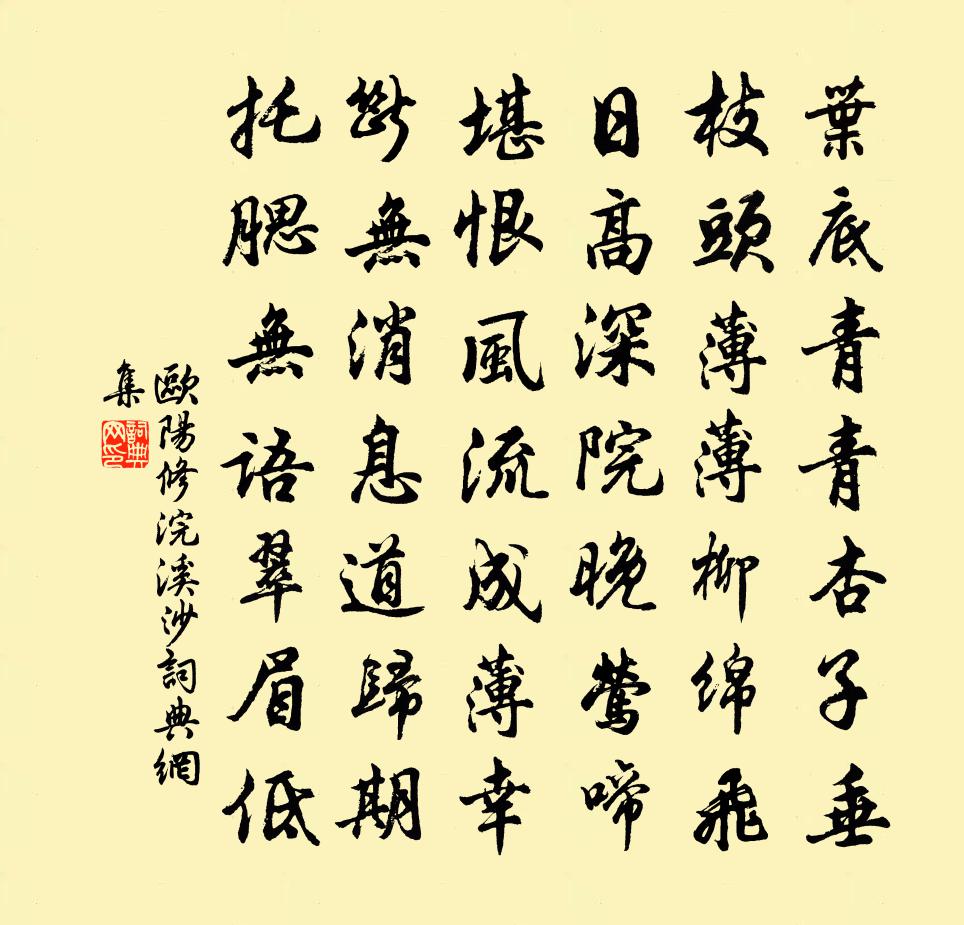 葉底青青杏子垂
枝頭薄薄柳綿飛
日高深院晚鶯啼
堪恨風流成薄幸
斷無消息道歸期
托腮無語翠眉低
歐陽修浣溪沙詞典網
集
詞典
网印